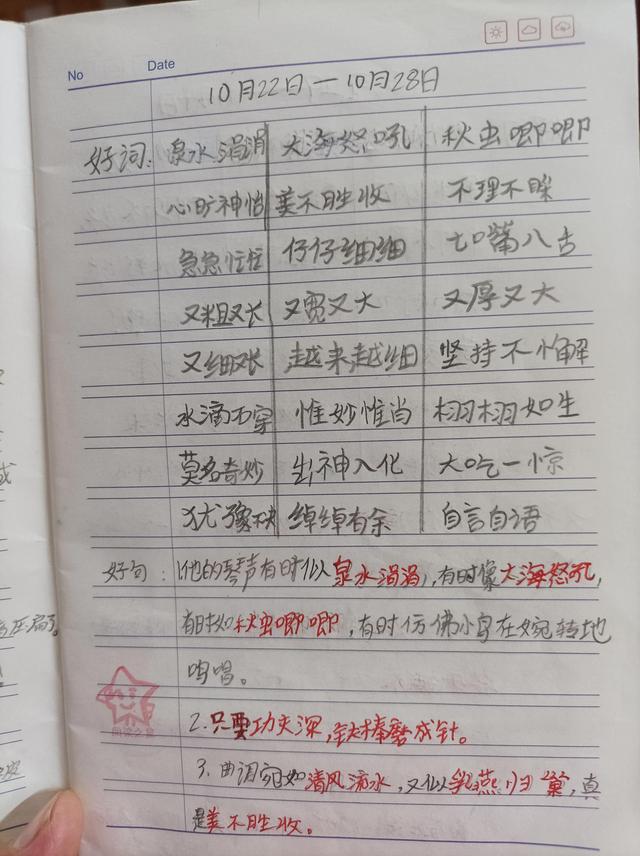 No Date
10月22日—10月28日
好词: 泉水涓涓 大海怒吼 秋虫唧唧
心旷神怡 美不胜收 不理不睬
急急忙忙 仔仔细细 七口嘴八舌
又粗又长 又宽又大 又厚又大
又细又长 越来越细 坚持不懈
水滴石穿 惟妙惟肖 栩栩如生
莫名奇妙 出神入化 大吃一惊
犹豫不决 绰绰有余 自言自语
好句: 1他的琴声有时似泉水涓涓,有时像大海怒吼,
有时如秋虫唧唧,有时仿佛小鸟在婉转地
鸣唱。
2.只要功夫深,铁棒磨成针。
3.曲调宛如清风流水,又似乳燕归巢,真
是美不胜收。